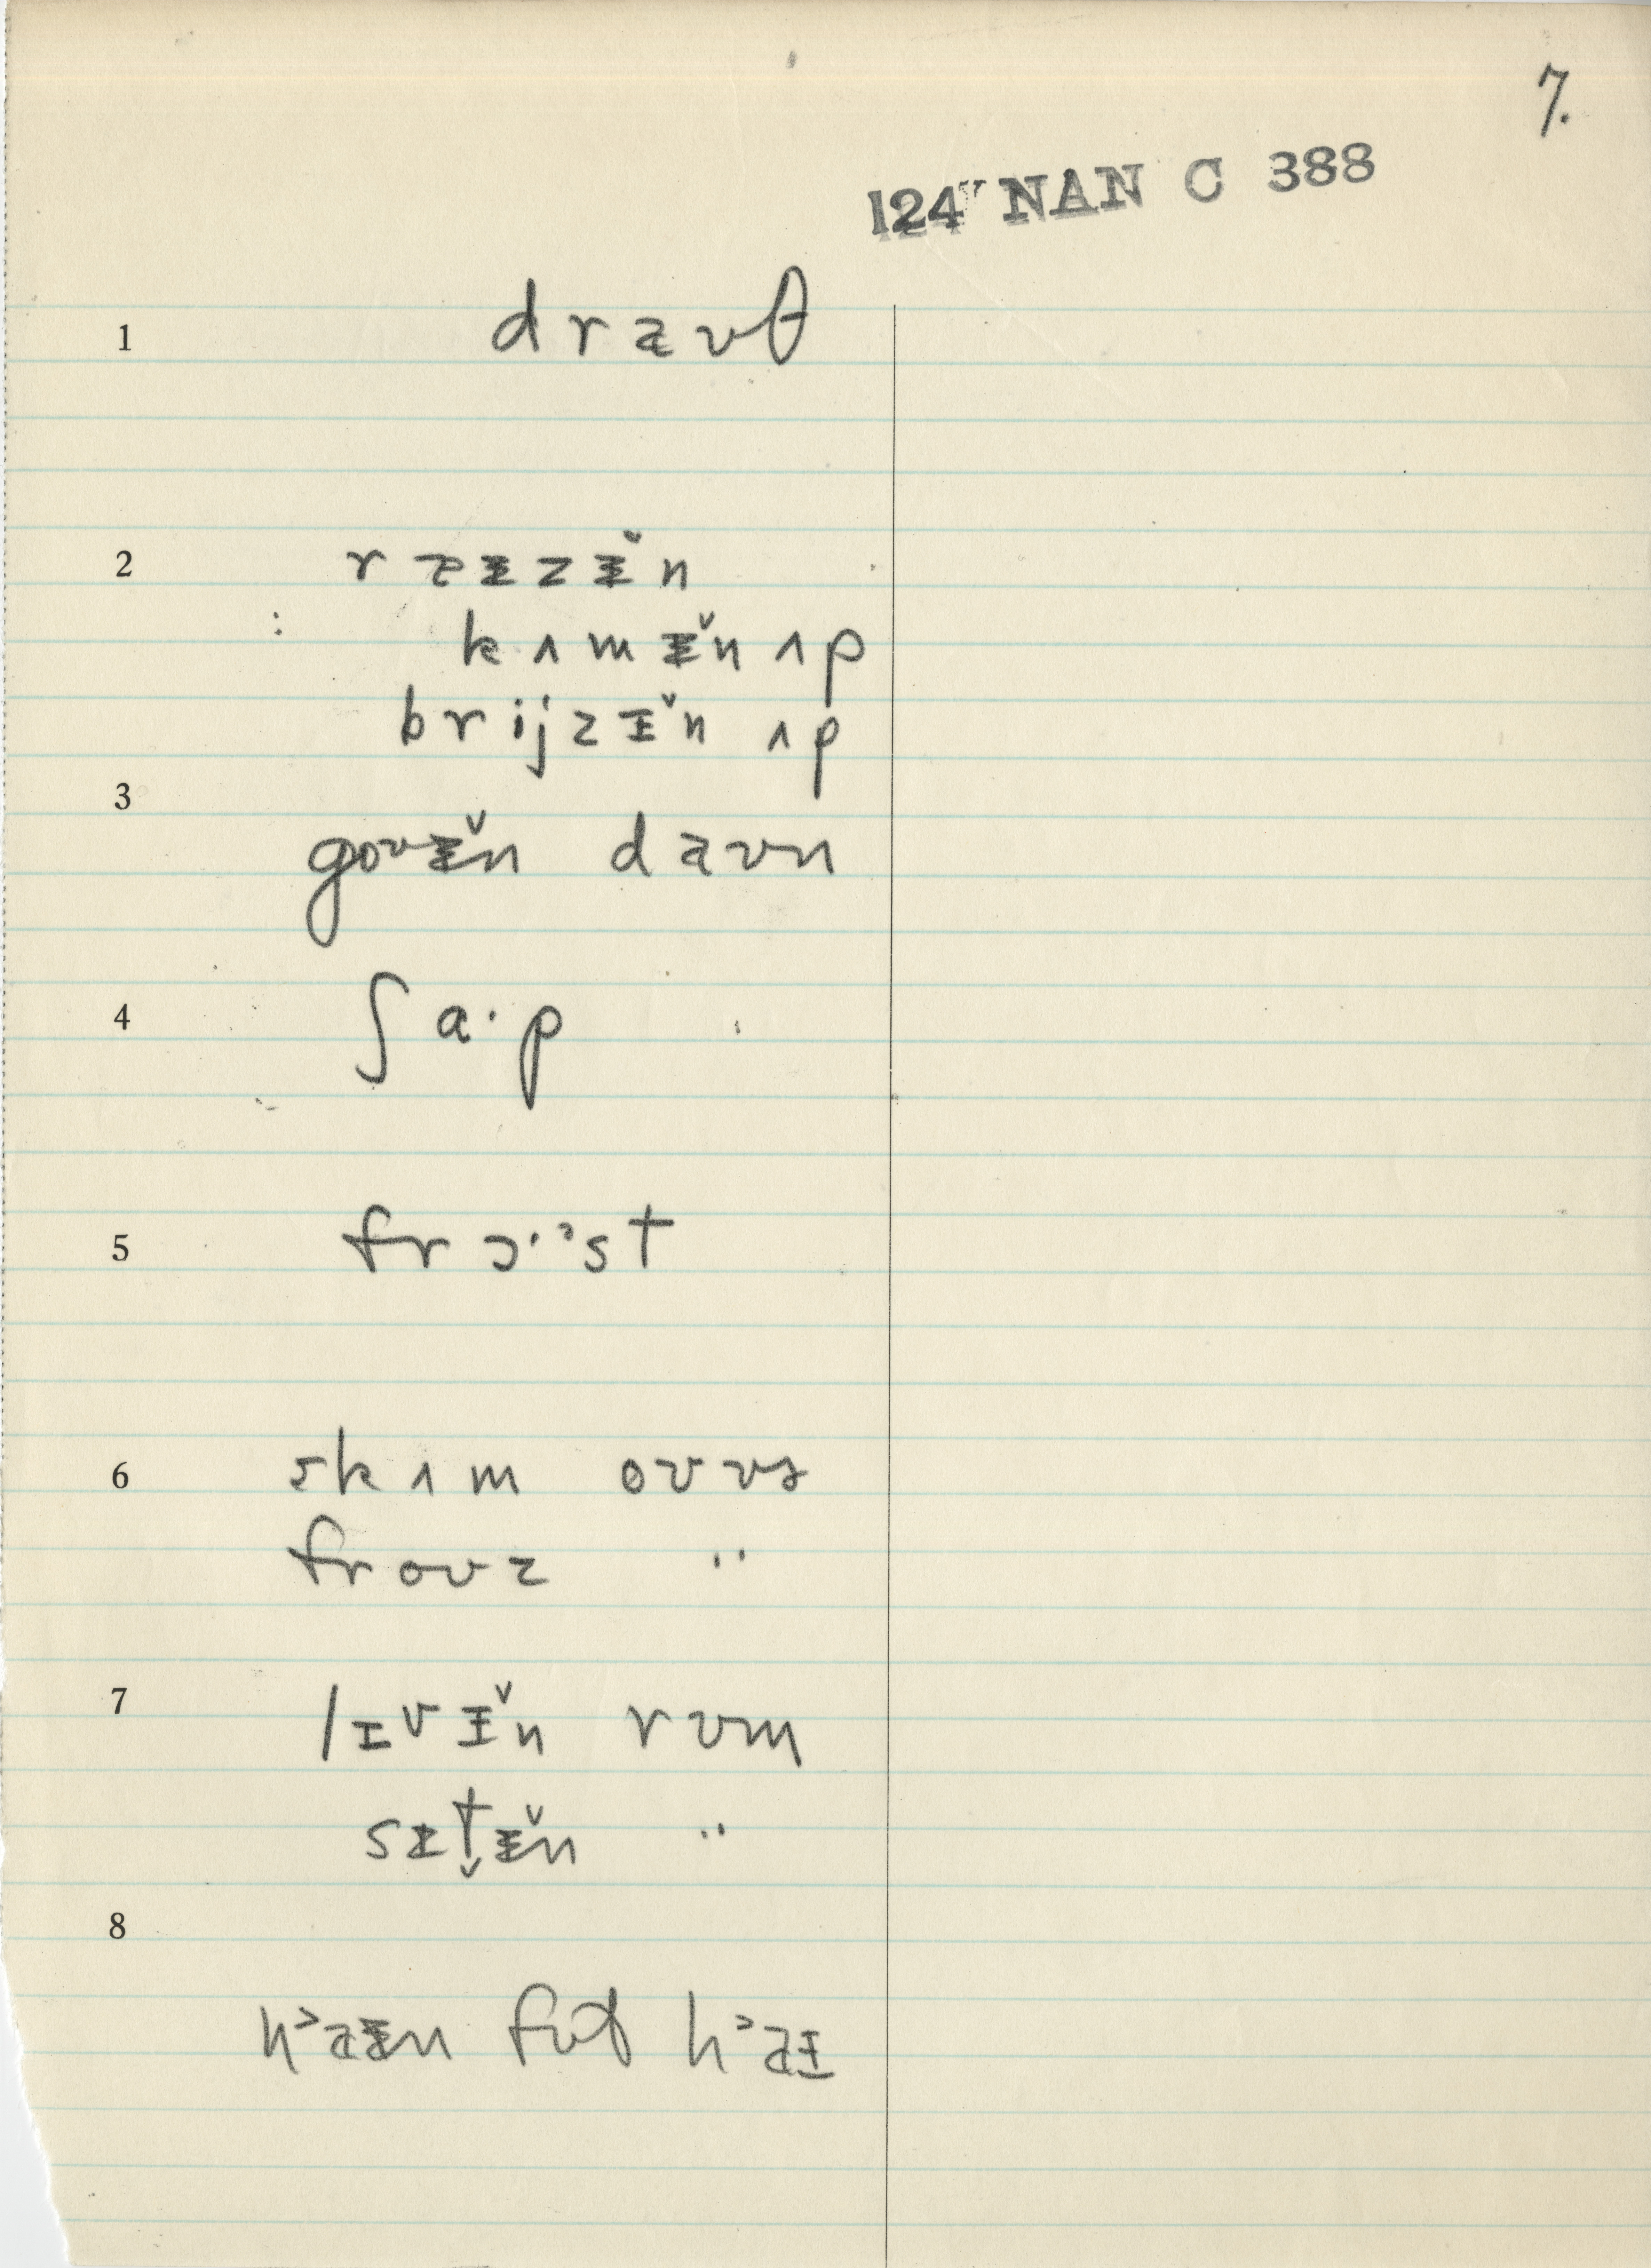 7.
124 NAN C 388
1 draʊθ
2 raɪzɪ̆n
: kʌmɪ̆n ʌp
brijzɪ̆n ʌp
3 goʊɪ̆n daʊn
4 ʃa·p
5 frɔ·ᵊst
6 skʌm oʊvɚ
froʊz "
7 lɪvɪ̆n rʊm
sɪt̬ɪ̆n "
8
hᵊaɪɪn fʊt hᵊaɪ